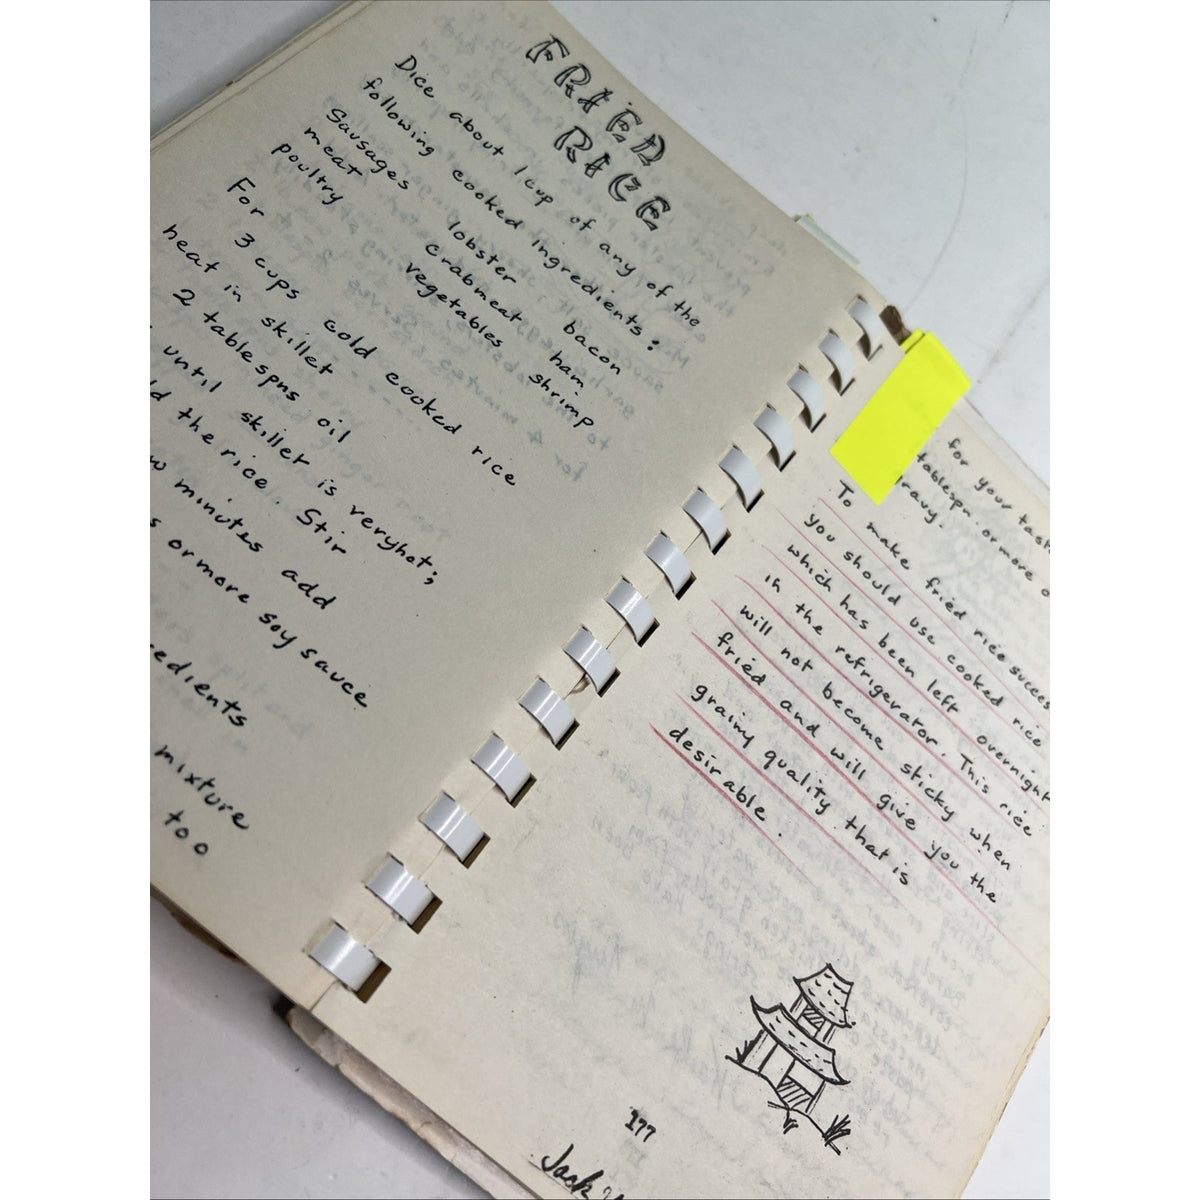 FRIED
RICE
Dice about 1 cup of any of the
following cooked ingredients:
Sausages lobster bacon
meat crabmeat ham
poultry vegetables shrimp
For 3 cups cold cooked rice
heat in skillet
2 tablespns oil
until skillet is very hot;
the rice. Stir
minutes add
or more soy sauce
mixture
too
for your
tablespn. or more
gravy.
To make fried rice
you should use cooked rice
which has been left overnight
in the refrigerator. This rice
will not become sticky when
fried and will give you the
grainy quality that is
desirable.
177
Jack